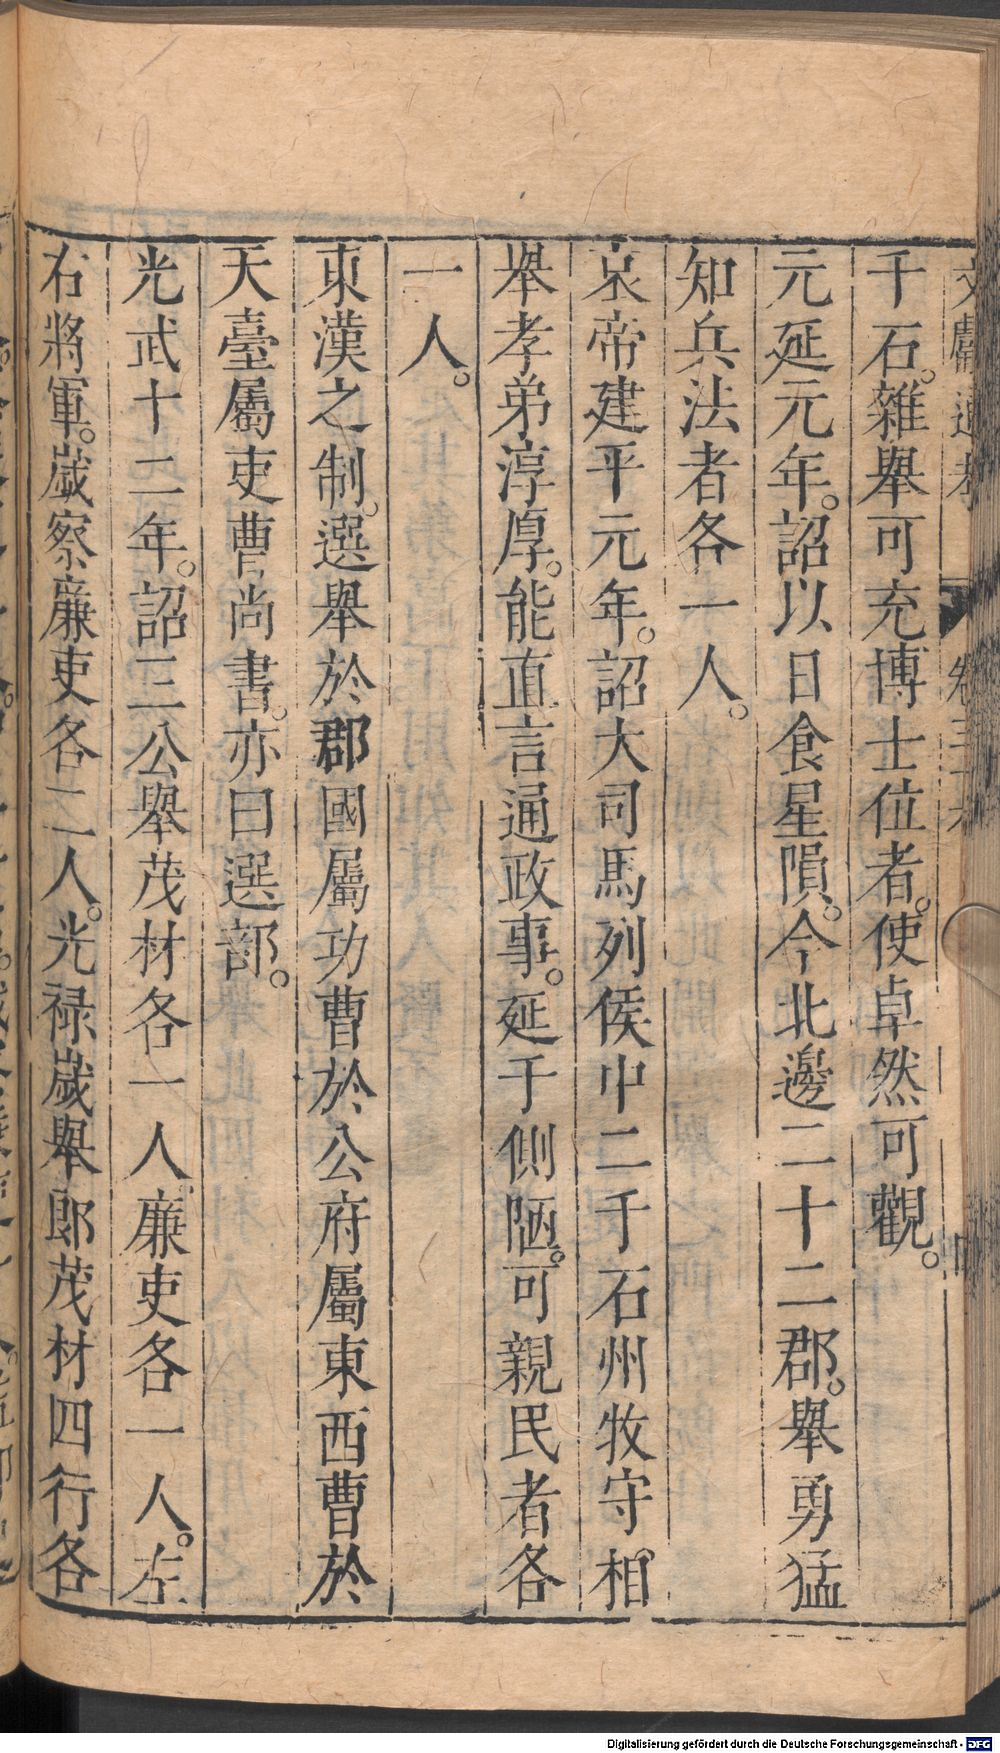 文獻通考 卷三十六
千石。雜舉可充博士位者。使卓然可觀。
元延元年。詔以日食星隕。今北邊二十二郡。舉勇猛
知兵法者各一人。
哀帝建平元年。詔大司馬列侯中二千石州牧守相
舉孝弟淳厚。能直言通政事。延于側陋。可親民者各
一人。
東漢之制。選舉於郡國屬功曹於公府屬東西曹於
天臺屬吏曹尚書。亦曰選部。
光武十二年。詔三公舉茂材各一人。廉吏各一人。左
右將軍。歲察廉吏各二人。光祿歲舉郎茂材四行各
Digitalisierung gefördert durch die Deutsche Forschungsgemeinschaft - DFG